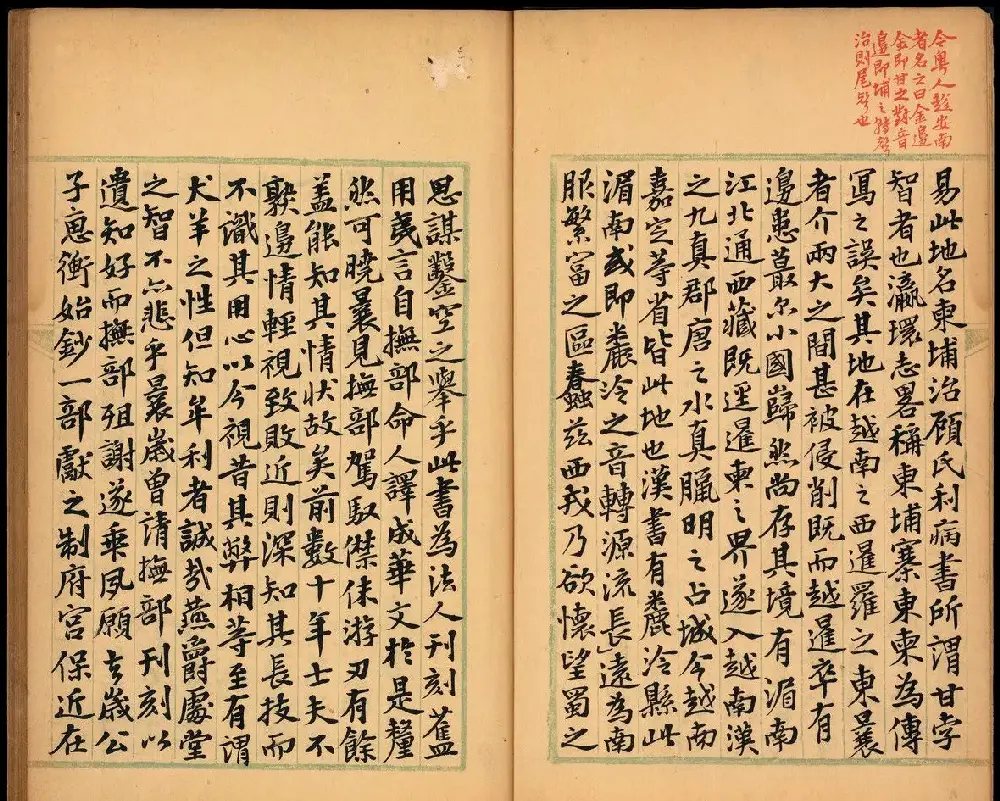 今粵人趍安南
者名之曰金邊
金即甘之對音
邊即埔之轉聲
治則尾聲也
易此地名柬埔治顧氏利病書所謂甘孛
智者也瀛環志畧稱東埔寨東柬為傳
寫之誤矣其地在越南之西暹羅之東曩
者介兩大之間甚被侵削既而越暹卒有
邊患蕞尔小國巋然尚存其境有湄南
江北通西藏既逕暹柬之界遂入越南漢
之九真郡唐之水真臘明之占城今越南
嘉定等省皆此地也漢書有麊泠縣此
湄南或即麊泠之音轉源流長遠為南
服繁富之區蠢茲西戎乃欲懷望蜀之
思謀鑿空之舉乎此書為法人刊刻舊
用彧言自撫部命人譯成華文於是釐
然可曉曩見撫部駕馭傑侏游刃有餘
盖能知其情状故矣前數十年士夫不
孰邊情輕視致敗近則深知其長技而
不識其用心以今視昔其弊相等至有謂
犬羊之性但知牟利者誠哉燕爵處堂
之智不亦悲乎曩歲曾請撫部刊刻以
遺知好而撫部殂謝遂乖夙願去歲公
子惠衡始鈔一部獻之制府宫保近在